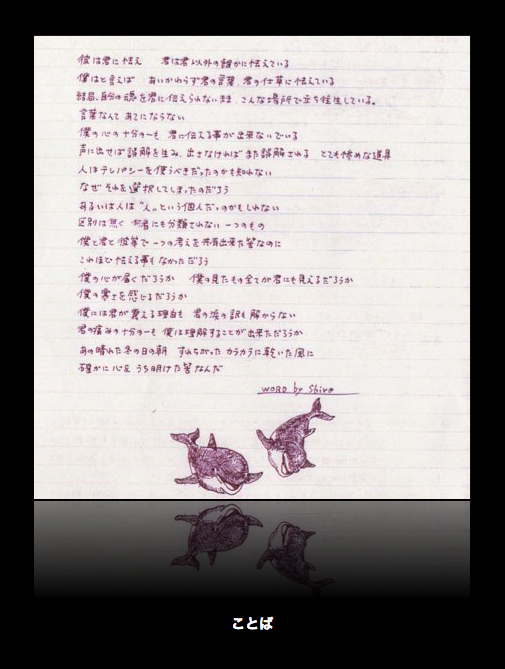 彼は君に怯え 君は君以外の誰かに怯えている
僕はと言えば あいかわらず君の言葉、君の仕草に怯えている
結局、自分の魂を君に伝えられないまま、こんな場所で立ち往生している。
言葉なんて あてにならない
僕の心の十分の一も 君に伝える事が出来ないでいる
声に出せば誤解を生み、出さなければまた誤解される とても惨めな道具
人はテレパシーを使うべきだったのかも知れない
なぜそれを選択してしまったのだろう
あるいは人は "人"という個人だったのかもしれない
区別は無く 何者にも分類されない 一つのもの
僕と君と彼等で 一つの考えを共有出来た筈なのに
これほど怯える事もなかっただろう
僕の心が届くだろうか 僕の見たもの全てが君にも見えるだろうか
僕の寒さを感じるだろうか
僕には君が震える理由も 君の涙の訳も解からない
君の痛みの十分の一も 僕は理解することが出来ただろうか
あの晴れた冬の日の朝 すれちがった カラカラに乾いた風に
確かに心を うち明けた筈なんだ
WORD by Shiro
ことば